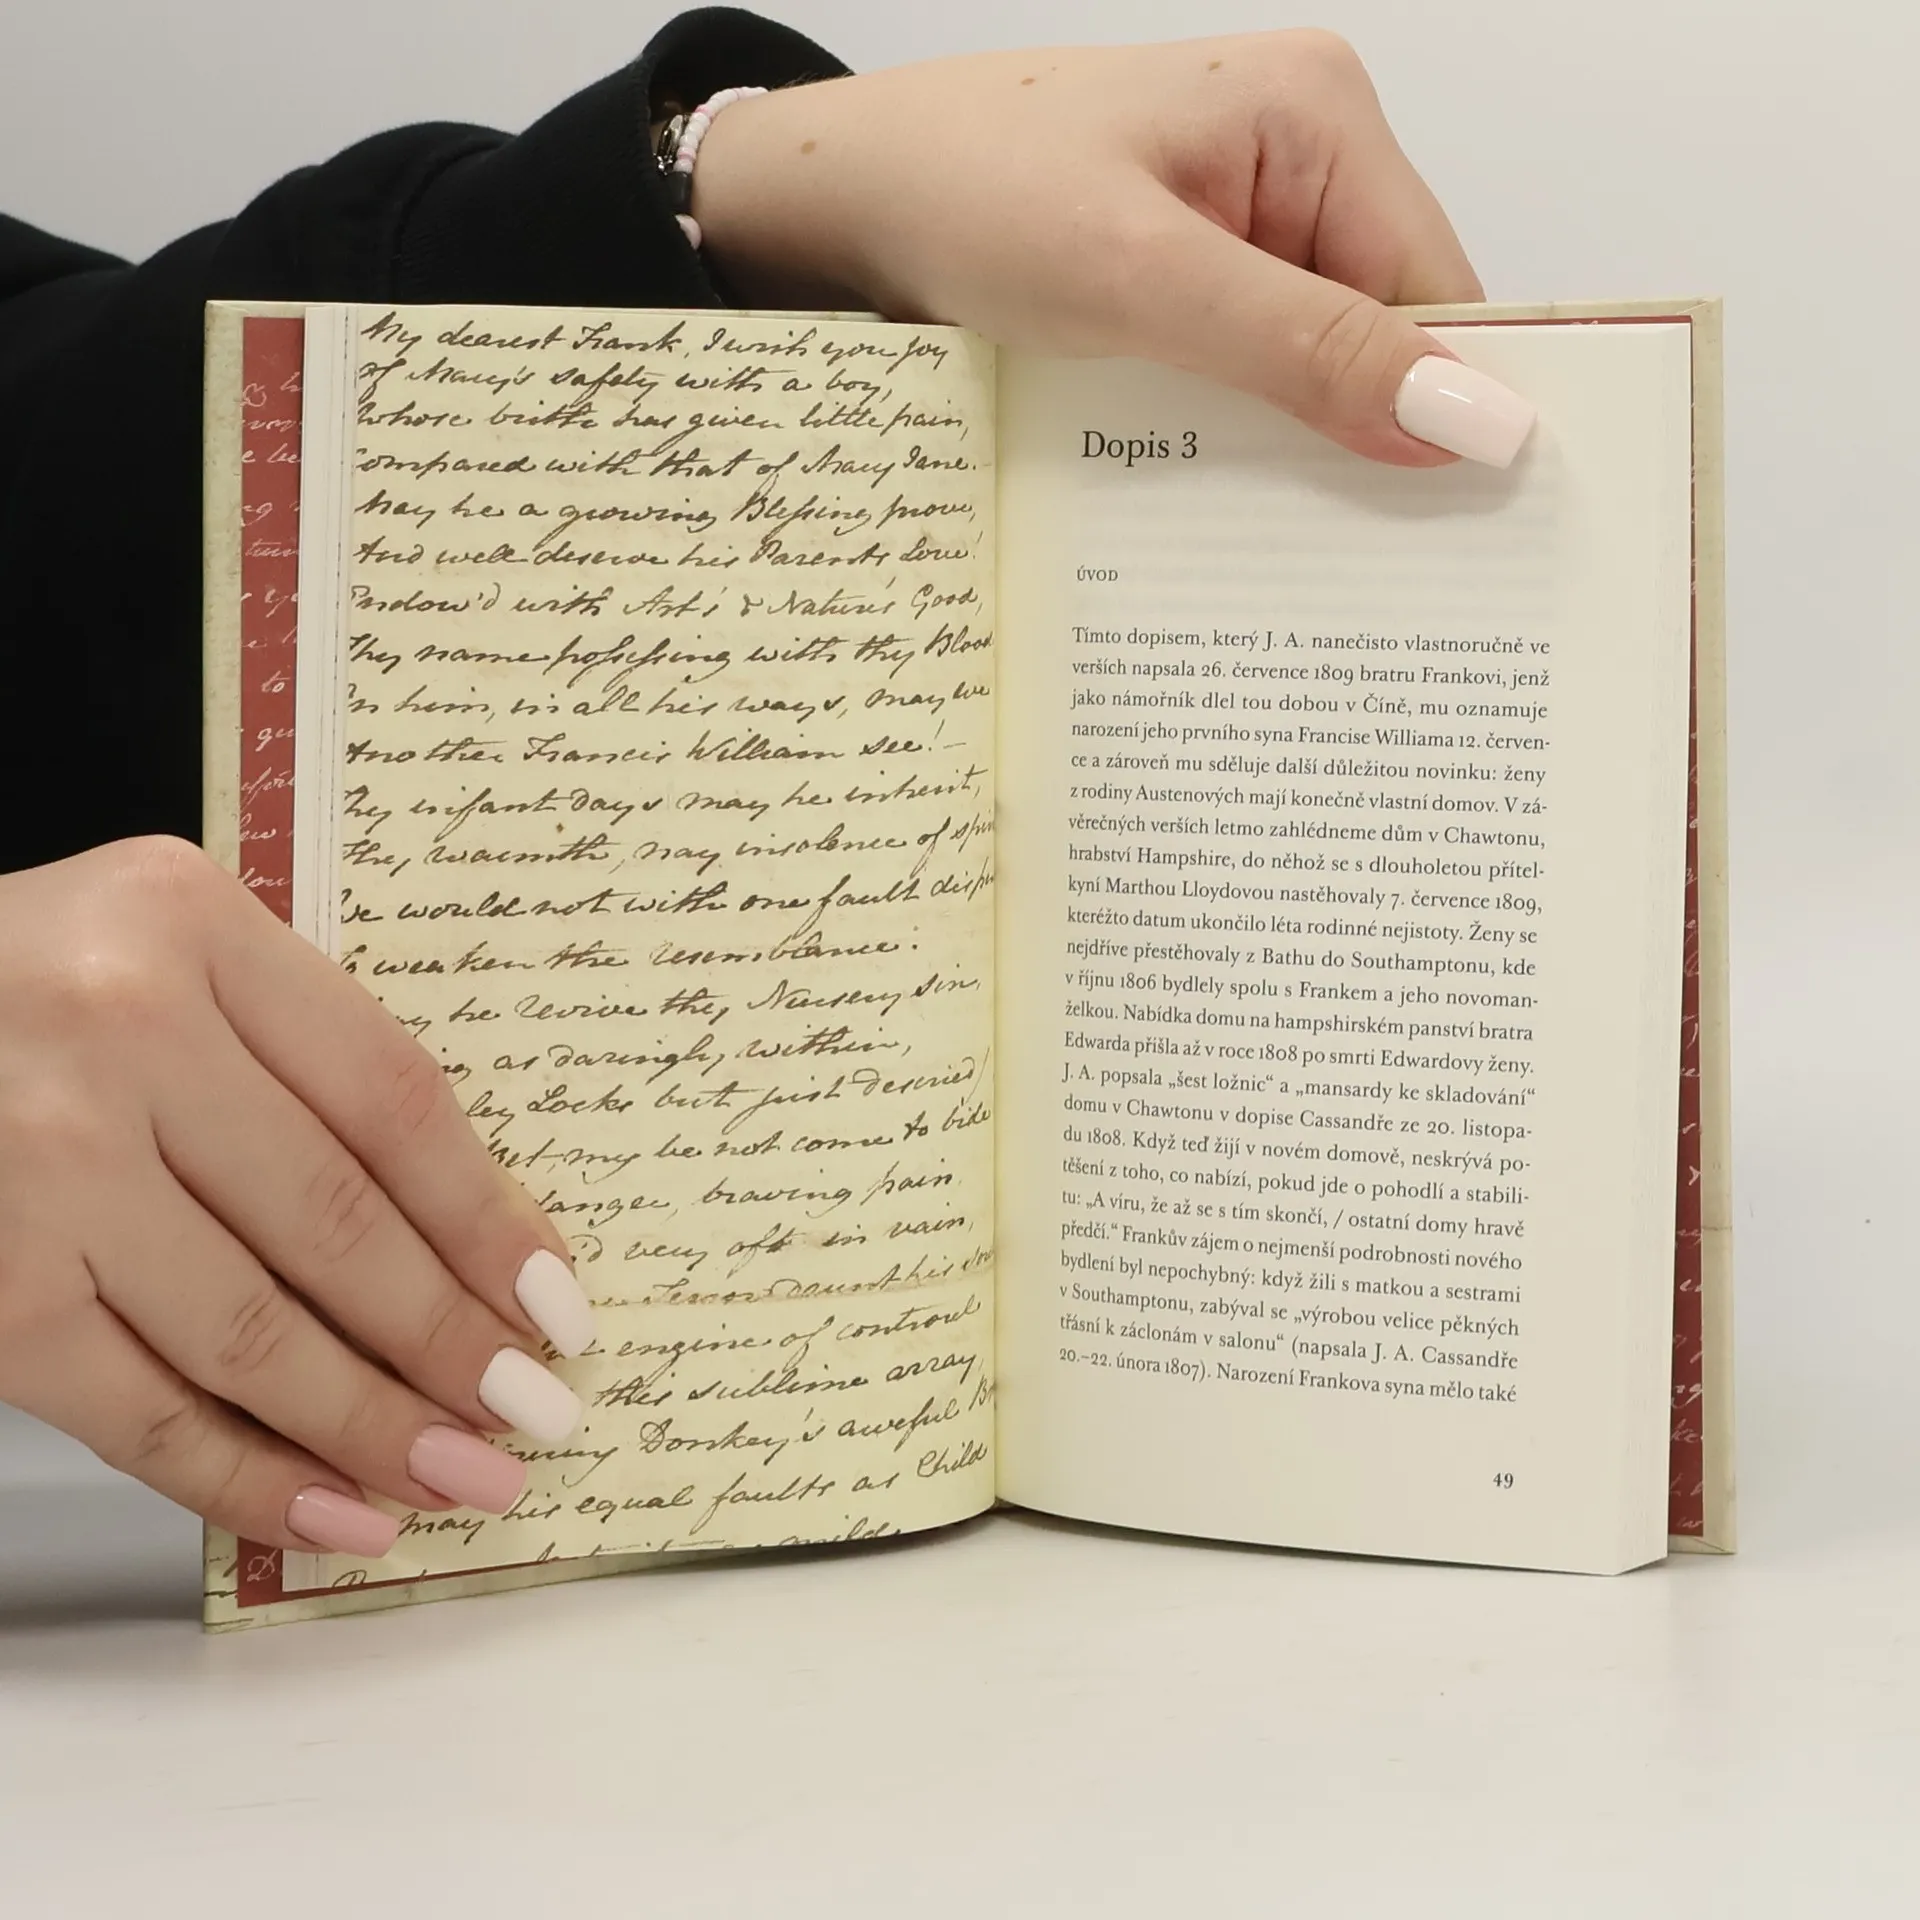 My dearest Frank, I wish you joy
Of Mary's safety with a boy,
Whose birth has given little pain,
Compared with that of Mary Jane.-
May he a growing Blessing prove,
And well deserve his Parents Love!
Endow'd with Art's & Nature's Good,
Thy name possessing with thy Blood
In him, in all his ways, may we
Another Francis William see!-
Thy infant days may he inherit,
Thy warmth, nay insolence of
We would not with one fault
weaken the resemblance.
he revive thy Nursery sin,
as daringly within,
Locks but just descried)
Bet, my be not come to bide
danger, braving pain.
very oft in vain,
Terror daunt his
engine of controul
this sublime array,
Donkey's aweful
may his equal faults as Child
Dopis 3
ÚVOD
Tímto dopisem, který J. A. nanečisto vlastnoručně ve
verších napsala 26. července 1809 bratru Frankovi, jenž
jako námořník dlel tou dobou v Číně, mu oznamuje
narození jeho prvního syna Francise Williama 12. červen-
ce a zároveň mu sděluje další důležitou novinku: ženy
z rodiny Austenových mají konečně vlastní domov. V zá-
věrečných verších letmo zahlédneme dům v Chawtonu,
hrabství Hampshire, do něhož se s dlouholetou přítel-
kyní Marthou Lloydovou nastěhovaly 7. července 1809,
kteréžto datum ukončilo léta rodinné nejistoty. Ženy se
nejdříve přestěhovaly z Bathu do Southamptonu, kde
v říjnu 1806 bydlely spolu s Frankem a jeho novoman-
želkou. Nabídka domu na hampshirském panství bratra
Edwarda přišla až v roce 1808 po smrti Edwardovy ženy.
J. A. popsala „šest ložnic“ a „mansardy ke skladování“
domu v Chawtonu v dopise Cassandře ze 20. listopa-
du 1808. Když teď žijí v novém domově, neskrývá po-
těšení z toho, co nabízí, pokud jde o pohodlí a stabili-
tu: „A víru, že až se s tím skončí, / ostatní domy hravě
předčí.“ Frankův zájem o nejmenší podrobnosti nového
bydlení byl nepochybný: když žili s matkou a sestrami
v Southamptonu, zabýval se „výrobou velice pěkných
třásní k záclonám v salonu“ (napsala J. A. Cassandře
20.–22. února 1807). Narození Frankova syna mělo také
49